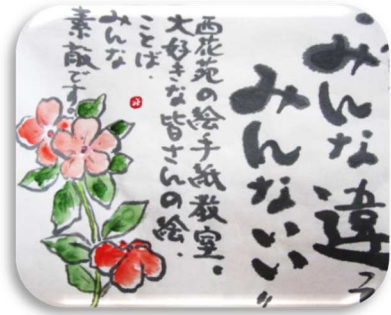 “みんな違って
みんないい”
西花苑の絵手紙教室。
大好きな皆さんの絵、
ことば、
みんな
素敵です。